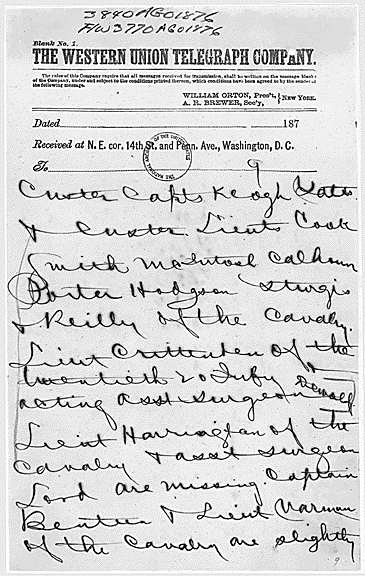 3840AGO1876
F/W3770AGO1876
Blank No. 1.
THE WESTERN UNION TELEGRAPH COMPANY.
The rules of this Company require that all messages received for transmission, shall be written on the message blanks
of the Company, under and subject to the conditions printed thereon, which conditions have been agreed to by the sender of
the following message.
WILLIAM ORTON, Pres't,
A. R. BREWER, Sec'y,
NEW YORK.
Dated 187
Received at N. E. cor. 14th St. and Penn. Ave., Washington, D. C.
To 9
Custer Capts Keogh Yates
& Custer Lieuts Cook
Smith McIntosh Calhoun
Porter Hodgson Sturgis
& Reilly of the Cavalry.
Lieut Crittenden of the
twentieth 20 Infy &
acting asst surgeon Dewolf
Lieut Harrington of the
Cavalry & asst surgeon
Lord are missing. Captain
Benteen & Lieut Varnum
of the Cavalry are slightly
9